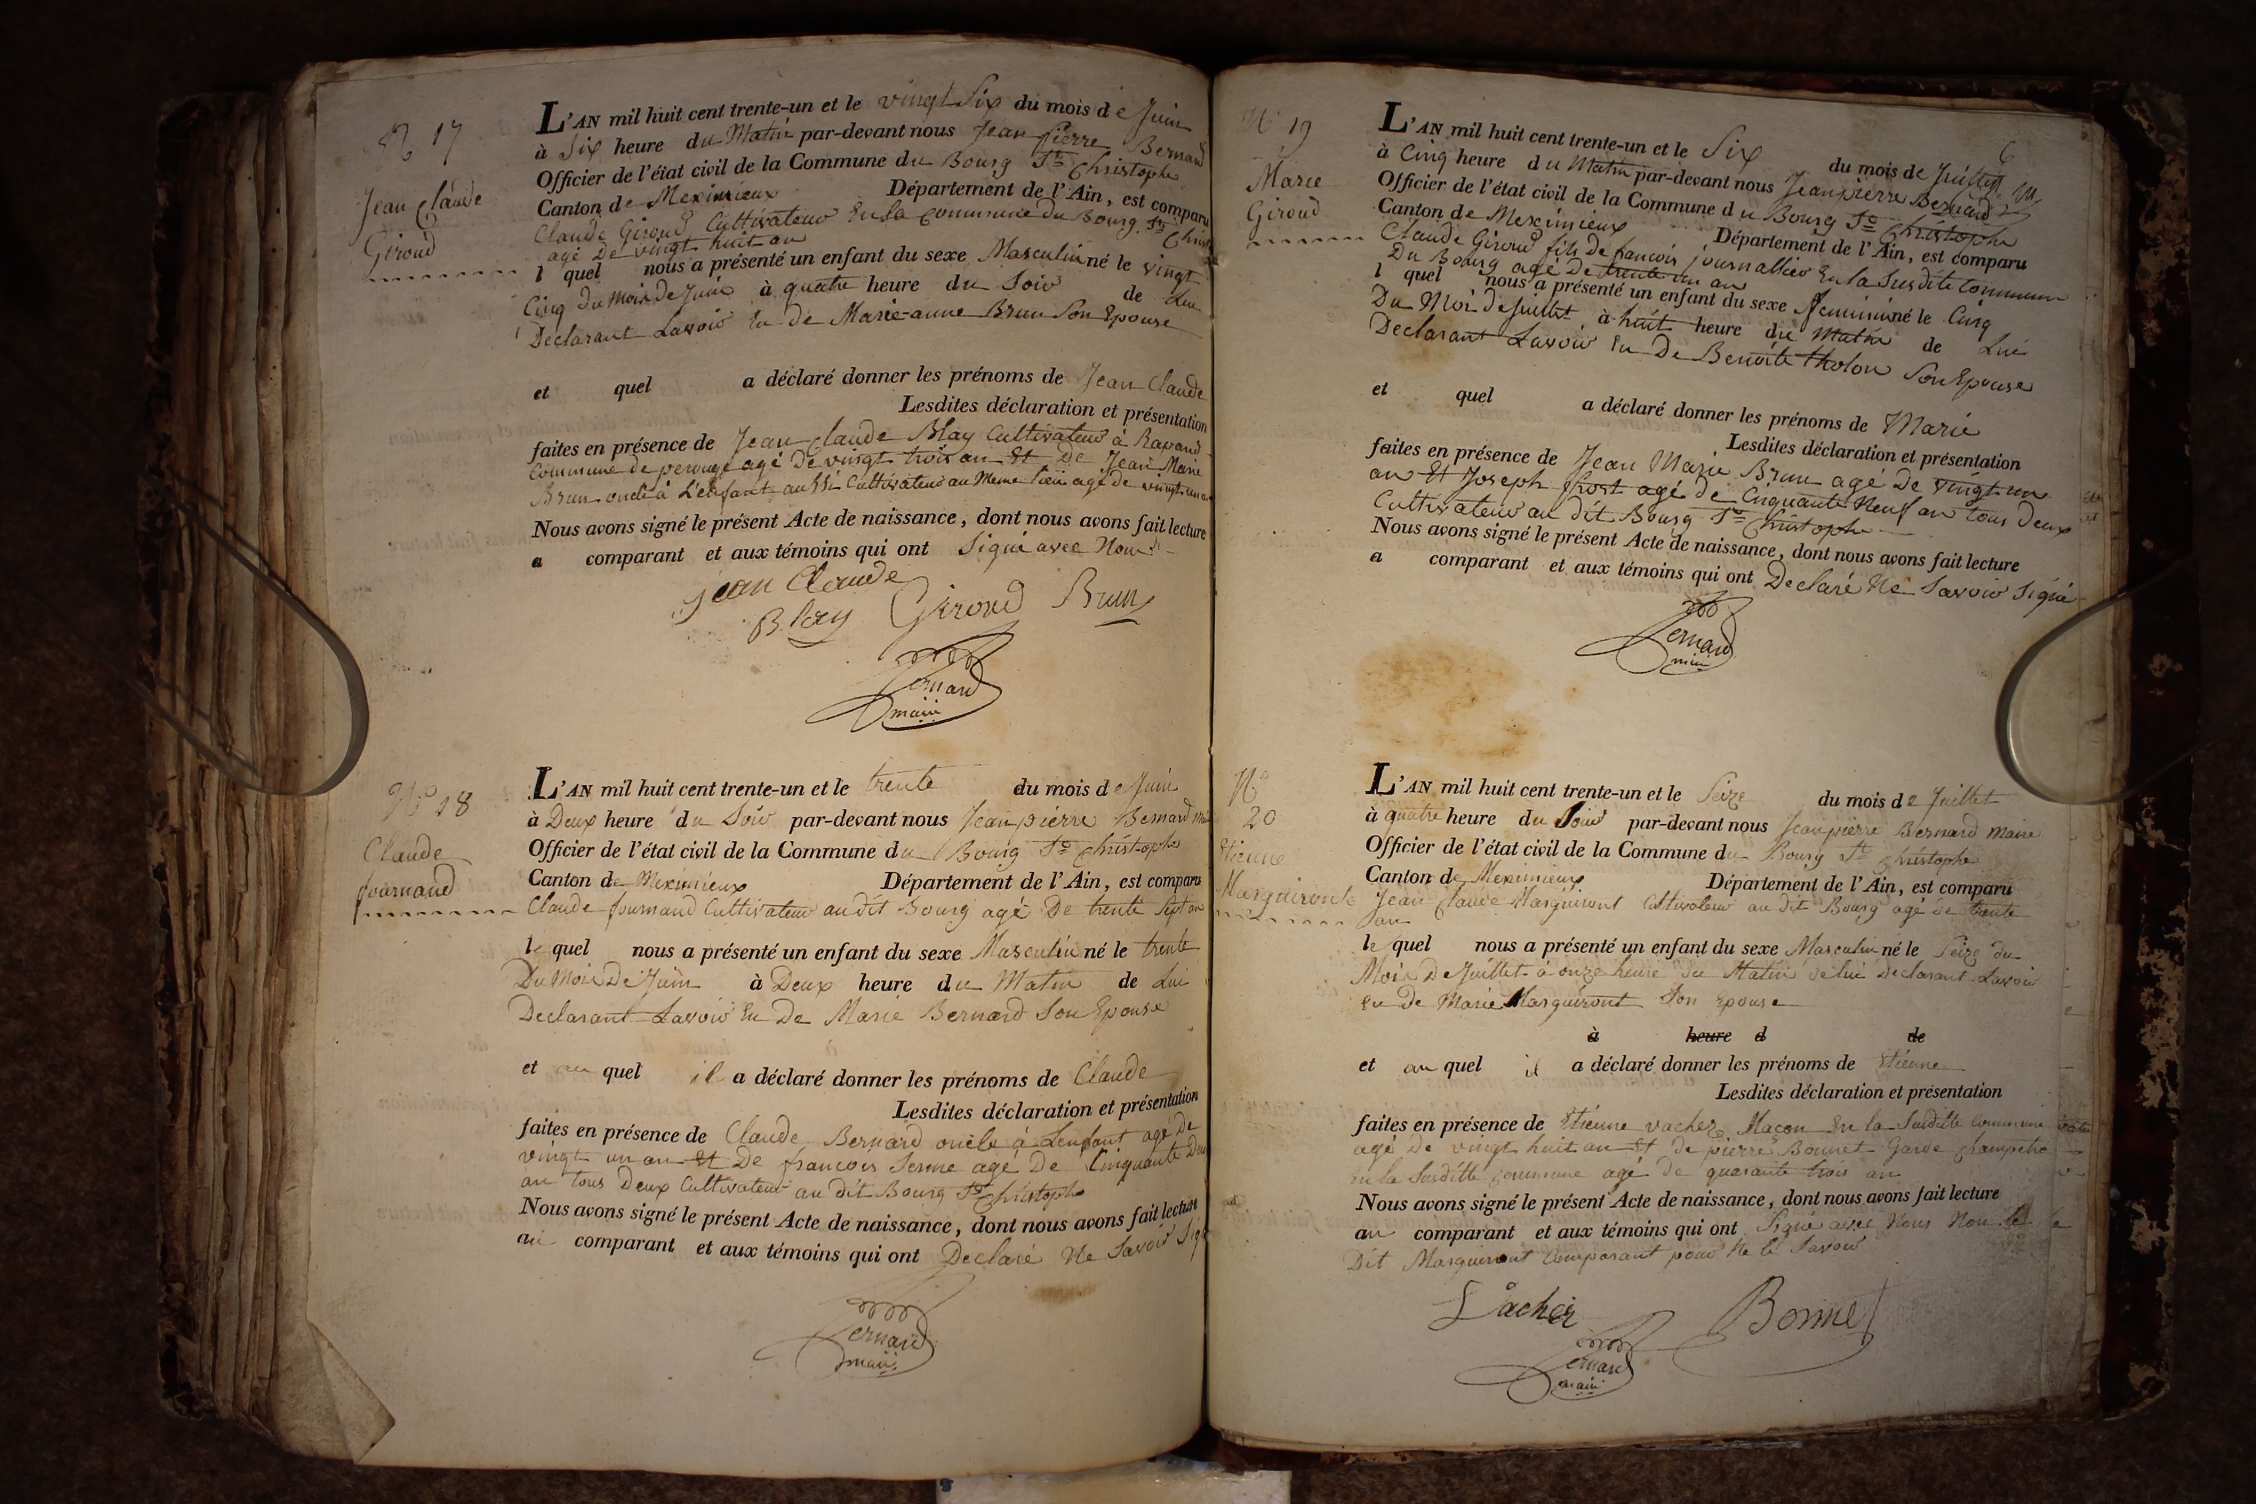 N° 17
Jean Claude
Giroud
L'AN mil huit cent trente-un et le vingt Six du mois de Juin
à Six heure du Matin par-devant nous Jean Pierre Bernard
Officier de l'état civil de la Commune du Bourg St Christophe
Canton de Meximieux Département de l'Ain, est comparu
Claude Giroud Cultivateur En la Commune du Bourg St Christ
agé De vingt huit an
l quel nous a présenté un enfant du sexe Masculin né le vingt
Cinq du Mois de Juin à quatre heure du Soir de Lui
Declarant Lavoir Eu de Marie-anne Brun Son Epouse
et quel a déclaré donner les prénoms de Jean Claude
Lesdites déclaration et présentation
faites en présence de Jean Claude Blay Cultivateur à Rapand
Commune de perouge agé De vingt trois an Et De Jean Marie
Brun oncle à L'enfant aussi Cultivateur au Meme lieu agé de vingt un an
Nous avons signé le présent Acte de naissance, dont nous avons fait lecture
a comparant et aux témoins qui ont Signé avec Nous
Jean Claude
Blay Giroud Brun
Bernard
maire
N° 18
Claude
fournand
L'AN mil huit cent trente-un et le trente du mois de Juin
à Deux heure du Soir par-devant nous Jean pierre Bernard
Officier de l'état civil de la Commune du Bourg St Christophe
Canton de Meximieux Département de l'Ain, est comparu
Claude fournand Cultivateur au dit Bourg agé De trente Sept an
le quel nous a présenté un enfant du sexe Masculin né le trente
Du Mois De Juin à Deux heure du Matin de Lui
Declarant Lavoir Eu De Marie Bernard Son Epouse
et au quel il a déclaré donner les prénoms de Claude
Lesdites déclaration et présentation
faites en présence de Claude Bernard oncle à Lenfant agé De
vingt un an Et De francois Senne agé De Cinquante Deux
an tous Deux Cultivateur au dit Bourg St Christophe
Nous avons signé le présent Acte de naissance, dont nous avons fait lecture
au comparant et aux témoins qui ont Declaré Ne Savoir Sign
Bernard
maire
N° 19
Marie
Giroud
6
L'AN mil huit cent trente-un et le Six du mois de Juillet
à Cinq heure du Matin par-devant nous Jean pierre Bernard
Officier de l'état civil de la Commune du Bourg St Christophe
Canton de Meximieux Département de l'Ain, est comparu
Claude Giroud fils De francois journallier En la Susdite Commune
Du Bourg agé De trente un an
l quel nous a présenté un enfant du sexe feminin né le Cinq
Du Moi de Juillet à huit heure du Matin de Lui
Declarant Lavoir Eu De Benoite tholon Son Epouse
et quel a déclaré donner les prénoms de Marie
Lesdites déclaration et présentation
faites en présence de Jean Marie Brun agé De vingt un
an Et Joseph frost agé de Cinquante Neuf an tous Deux
Cultivateur au dit Bourg St Christophe
Nous avons signé le présent Acte de naissance, dont nous avons fait lecture
a comparant et aux témoins qui ont Declaré Ne Savoir Signé
Bernard
maire
N°
20
Etienne
Marguiront
L'AN mil huit cent trente-un et le Seize du mois de Juillet
à quatre heure du Soir par-devant nous Jean pierre Bernard maire
Officier de l'état civil de la Commune du Bourg St Christophe
Canton de Meximieux Département de l'Ain, est comparu
Jean Claude Marguiront Cultivateur au dit Bourg agé de trente
an
le quel nous a présenté un enfant du sexe Masculin né le Seize du
Mois De Juillet à onze heure du Matin de lui Declarant Lavoir
Eu De Marie Marguiront Son Epouse
à heure d de
et au quel il a déclaré donner les prénoms de Etienne
Lesdites déclaration et présentation
faites en présence de Etienne vacher Macon En la Susditte Commune
agé De vingt huit an Et de pierre Bonnet Garde Champetre
En la Susditte Commune agé de quarante trois an
Nous avons signé le présent Acte de naissance, dont nous avons fait lecture
au comparant et aux témoins qui ont Signé avec Nous Non le
Dit Marguiront Comparant pour Ne le Savoir
Vacher Bonnet
Bernard
maire